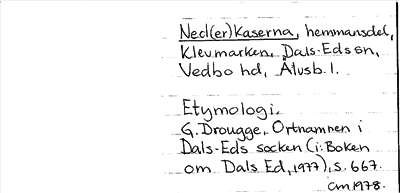 Ned(er)kaserna, hemmansdel,
Klevmarken, Dals-Eds sn,
Vedbo hd, Älvsb. l.
Etymologi.
G. Drougge, Ortnamnen i
Dals-Eds socken (i: Boken
om Dals Ed, 1977), s. 667.
CM 1978.